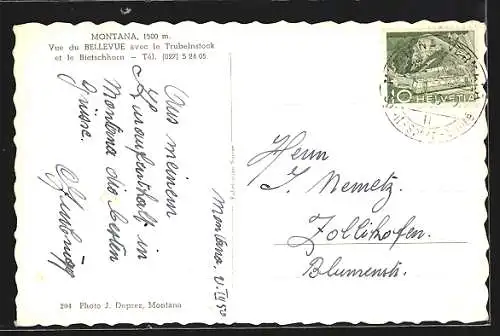 MONTANA, 1500 m.
Vue du BELLEVUE avec le Trubelnstock
et le Bietschhorn – Tél. (027) 5 24 05
Aus meinem
Kuraufenthalt in
Montana die besten
Grüsse.
Montana.
Herrn
J. Nemetz.
Zollikofen.
Blumenstr.
10 HELVETIA
204 Photo J. Deprez, Montana